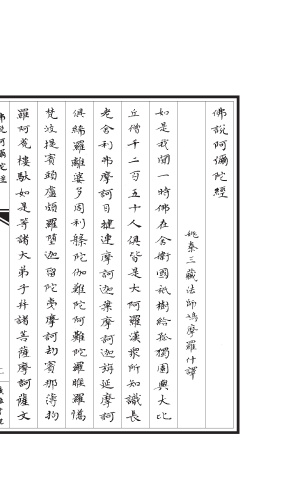 佛說阿彌陀經
姚秦三藏法師鳩摩羅什譯
如是我聞一時佛在舍衛國祇樹給孤獨園與大比
丘僧千二百五十人俱皆是大阿羅漢眾所知識長
老舍利弗摩訶目揵連摩訶迦葉摩訶迦旃延摩訶
俱絺羅離婆多周利槃陀伽難陀阿難陀羅睺羅憍
梵波提賓頭盧頗羅墮迦留陀夷摩訶劫賓那薄拘
羅阿㝹樓馱如是等諸大弟子并諸菩薩摩訶薩文
佛說阿彌陀經